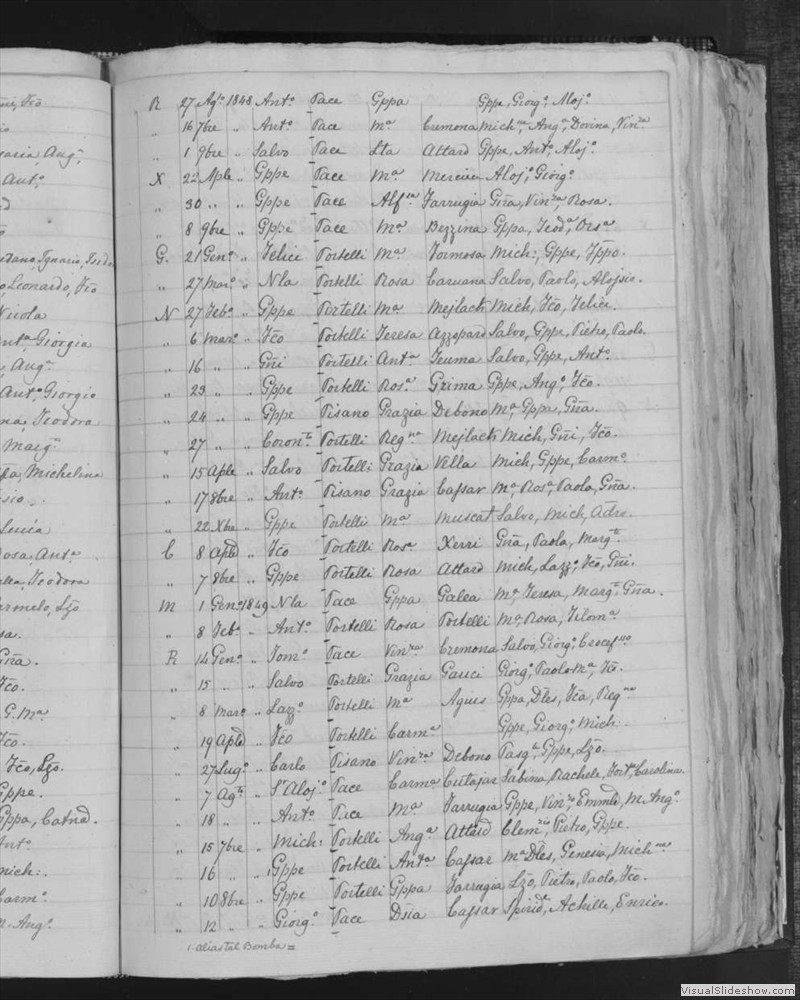 ni, Fco
aria Ang.
Ant.o
tano, Ignazio, Isido
o, Leonardo, Fco
Nicola
nta Giorgia
, Ang.a
Ant.o Giorgio
na, Teodora
Marg.a
lla, Michelina
sio.
Lucia
Rosa Ant.a
ssa, Teodora
ermelo, Lzo
sa.
Gña.
Fco.
G. Ma
Fco.
Fco, Lzo.
Gppe.
Gppa, Catnd.
Ant.o
Mich:.
Carm.o
M. Ang.o
R 27 Agt.o 1848 Ant.o Pace Gppa Gppe, Giorg.o, Aloj.o
" 16 7bre " Ant.o Pace Ma Cremona Mich.na, Ang.a, Dorina, Vin.za
" 1 9bre " Salvo Pace Lta Attard Gppe, Ant.o, Aloj.o
X 22 Aple " Gppe Pace Ma Mercieca Aloj.o, Giorg.o
" 30 " " Gppe Pace Alf.sa Farrugia Gña, Vin.za, Rosa.
" 8 9bre " Gppe Pace Ma Bezzina Gppa, Teod.a, Ors.a
G. 21 Gen.o " Felice Portelli Ma Formosa Mich:, Gppe, Ippo.
" 27 Mar.o " Nla Portelli Rosa Caruana Salvo, Paolo, Alojsio.
N 27 Feb.o " Gppe Portelli Ma Mejlach Mich, Fco, Felice.
" 6 Mar.o " Fco Portelli Teresa Azzopard Salvo, Gppe, Pietro, Paolo.
" 16 " " Gñi Portelli Ant.a Teuma Salvo, Gppe, Ant.o
" 23 " " Gppe Portelli Ros.a Grima Gppe, Ang.o, Fco.
" 24 " " Gppe Pisano Grazia Debono Ma, Gppa, Gña.
" 27 " " Coron.to Portelli Reg.na Mejlach Mich, Gñi, Fco.
" 15 Aple " Salvo Portelli Grazia Vella Mich, Gppe, Carm.o
" 17 8bre " Ant.o Pisano Grazia Caſsar Ma, Ros.a, Paola, Gña.
" 22 Xbre " Gppe Portelli Ma Muscat Salvo, Mich,
C 8 Aple " Fco Portelli Ros.a Xerri Gña, Paola, Marg.ta
" 7 8bre " Gppe Portelli Rosa Attard Mich, Lazz.o, Fco, Gñi.
M 1 Gen.o 1849 Nla Pace Gppa Galea Ma, Teresa, Marg.ta Gña.
" 8 Feb.o " Ant.o Portelli Rosa Portelli Ma Rosa, Filom.a
R 14 Gen.o " Tom.o Pace Vin.za Cremona Salvo, Giorg.o, Crocef.sso
" 15 " " Salvo Portelli Grazia Gauci Giorg.o, Paolo Ma, Fco.
" 8 Mar.o " Lazz.o Portelli Ma Agius Gppa, Dles, Fca, Reg.na
" 19 Aple " Fco Portelli Carm.a Gppe, Giorg.o, Mich:.
" 27 Lug.o " Carlo Pisano Vin.za Debono Pasq.le, Gppe, Lzo.
" 7 Agt.o " Sr Aloj.o Pace Carm.a Cutajar Sabina, Rachele, Fort.ta, Carolina.
" 18 " " Ant.o Pace Ma Farrugia Gppe, Vin.zo, Emmle, M. Ang.o
" 15 7bre " Mich: Portelli Ang.a Attard Clem.zio, Pietro, Gppe.
" 16 " " Gppe Portelli Ant.a Caſsar Ma Dles, Genesia, Mich.na
" 10 8bre " Gppe Portelli Gppa Farrugia Lzo, Pietro, Paolo, Fco.
" 12 " " Giorg.o Pace Dsia Caſsar Spirid.e, Achille, Enrico.
1. alias tal Bomba =
VisualSlideshow.com